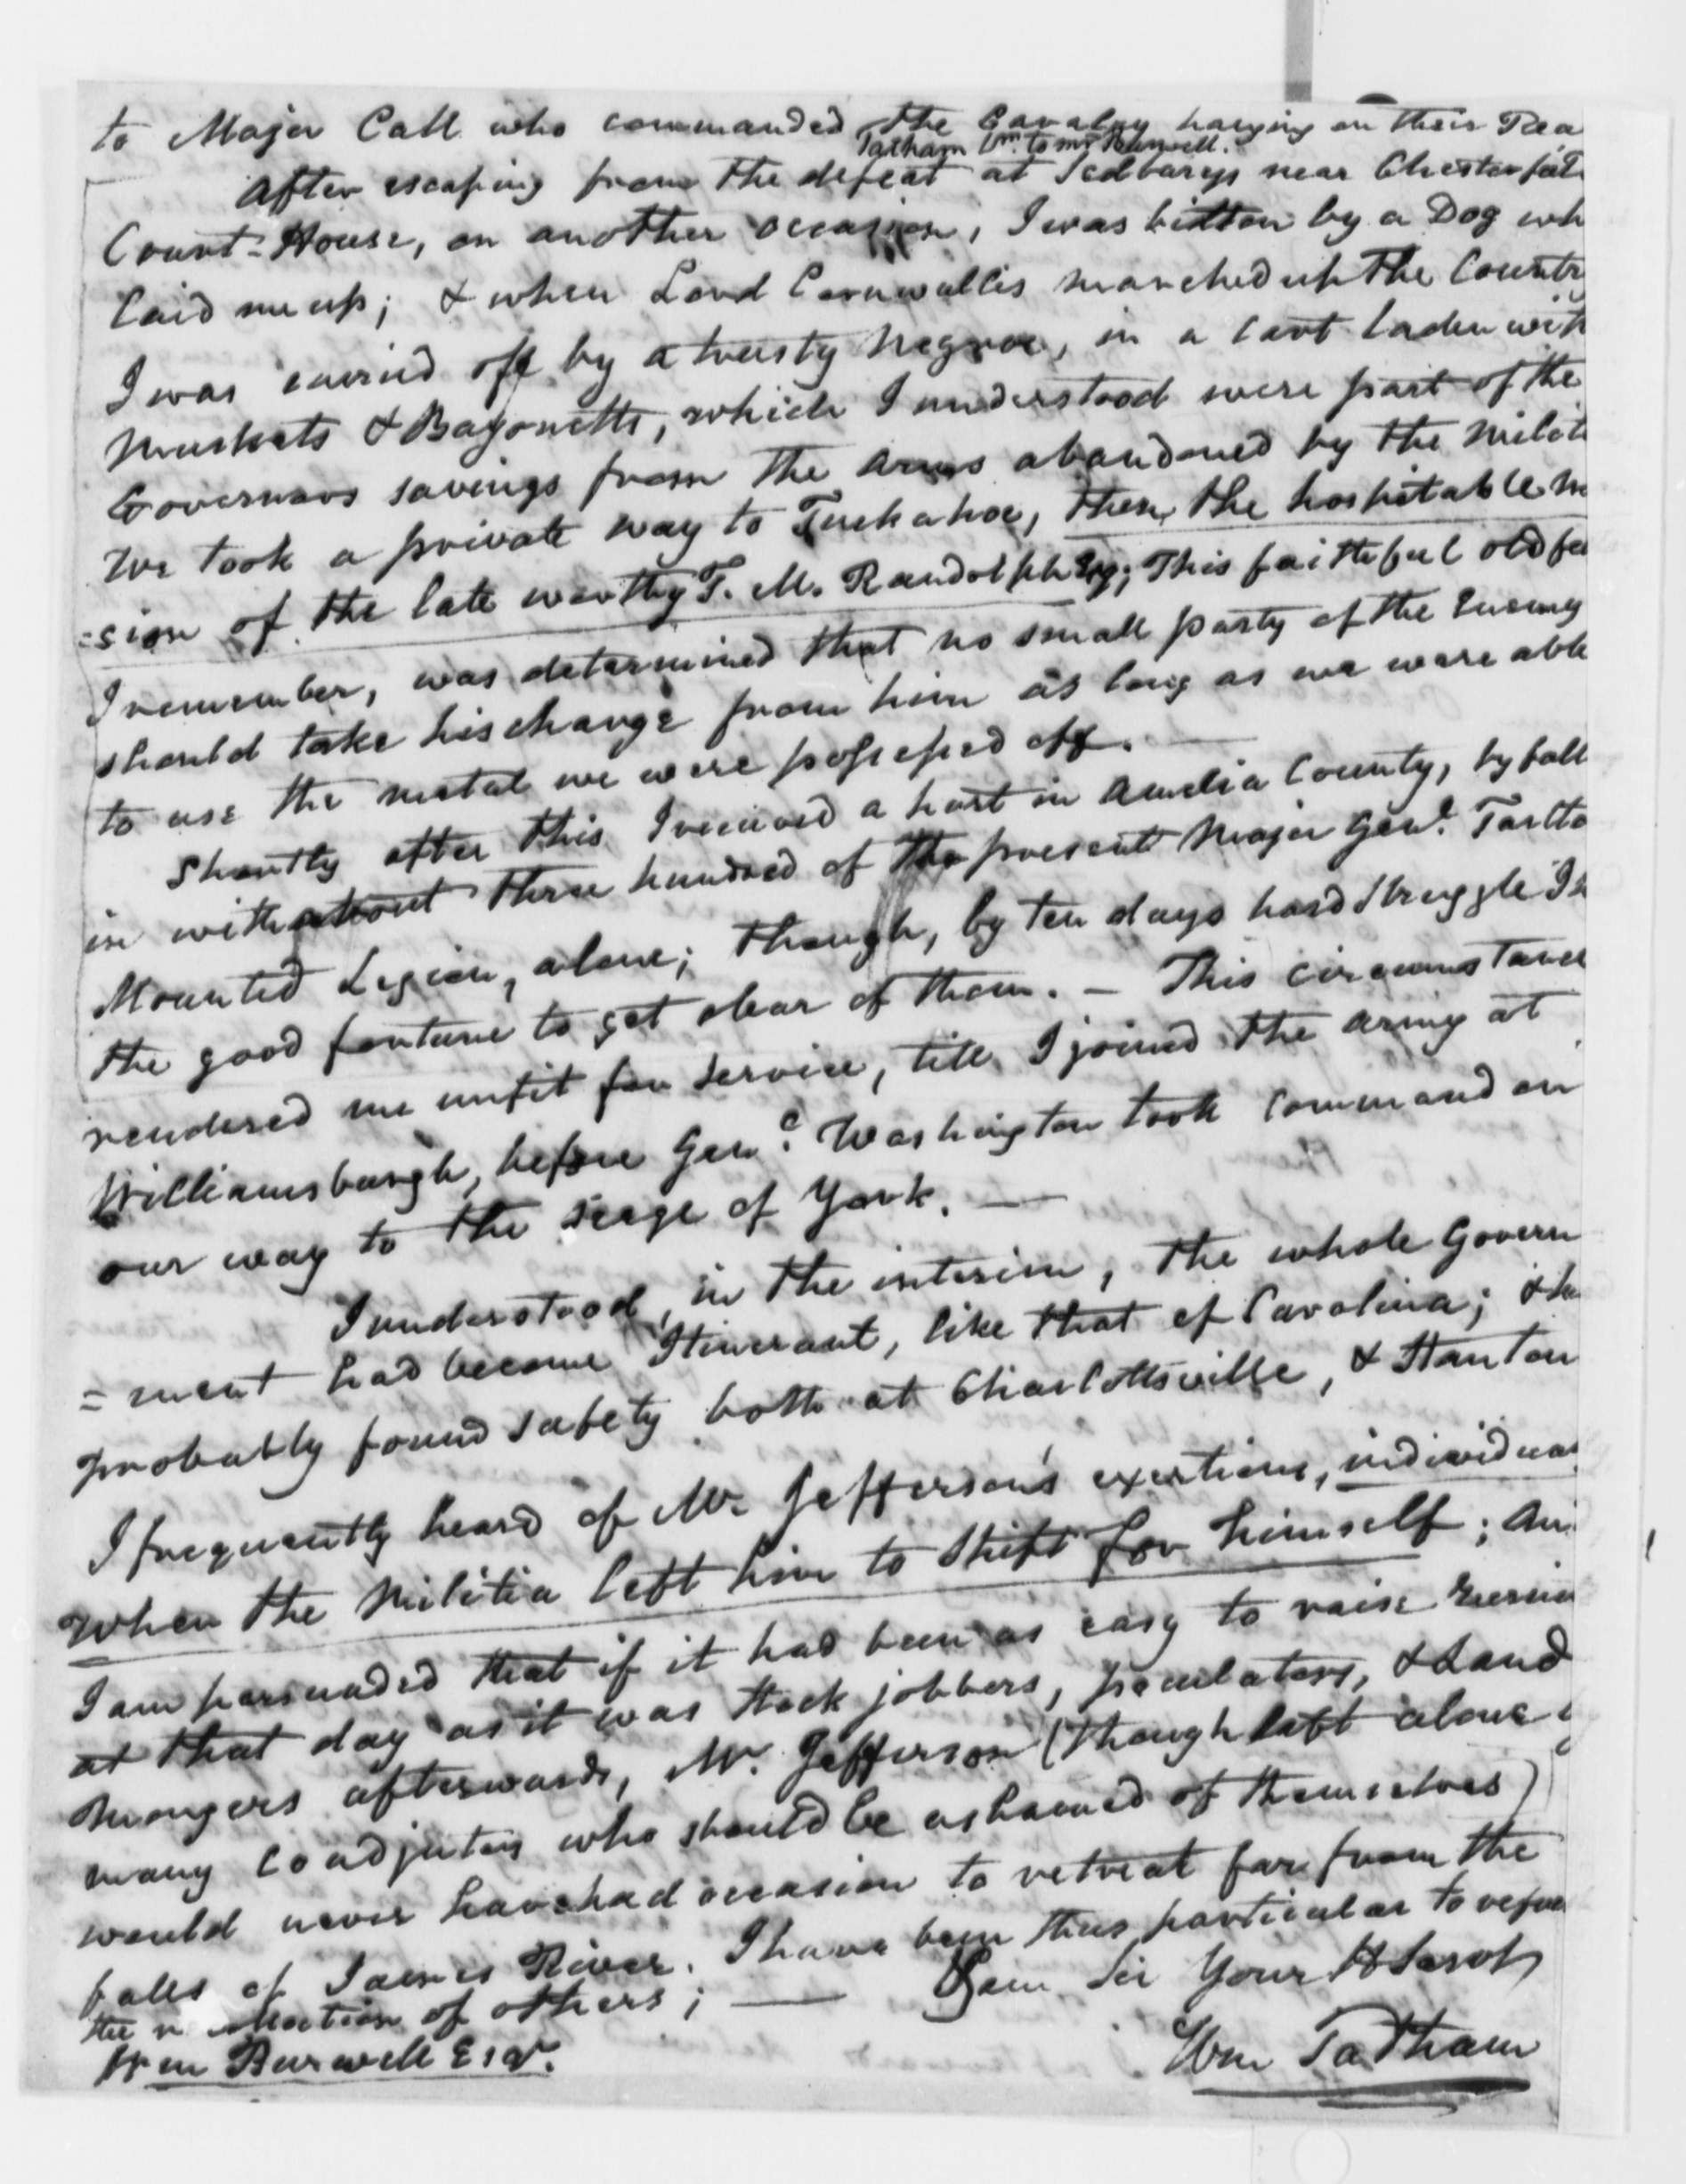 to Major Call who commanded the Cavalry hanging on their Rea
Tatham Wm. to Mr Burwell.
After escaping from the defeat at Scotbarys near Chesterfiel
Court-House, on another occasion, I was bitten by a Dog wh
laid me up; & when Lord Cornwallis marched up the Countr
I was carried off by a trusty Negroe, in a Cart laden with
Muskets & Bayonetts, which I understood were part of the
Governors savings from the Arms abandoned by the Milit
We took a private way to Tuckahoe, then, the hospitable m
=sion of the late worthy T. M. Randolph Esq; This faithful old fe
I remember, was determined that no small party of the Enemy
should take his charge from him as long as we were able
to use the metal we were possessed off. —
Shortly after this I received a hurt in Amelia County, by fall
in with about three hundred of the present Major Genl. Tarlto
Mounted Legion, alone; though, by ten days hard struggle I
the good fortune to get clear of them. — This circumstance
rendered me unfit for service, till I joined the army at
Williamsburgh, before Genl. Washington took command on
our way to the seige of York. —
I understood, in the interim, the whole Govern
=ment had become Itinerant, like that of Carolina; & ha
probably found safety both at Charlottsville, & Stanton
I frequently heard of Mr Jefferson's exertions, individua
When the Militia left him to shift for himself; An
I am persuaded that if it had been as easy to raise
at that day as it was stock jobbers, peculators, & Land
mongers afterwards, Mr. Jefferson (though left alone
many coadjutors who should be ashamed of themselves)
would never have had occasion to retreat far from the
falls of James River. I have been thus particular to
the of others; — I am Sir Your H Servt
Wm Burwell Esqr.
Wm Tatham